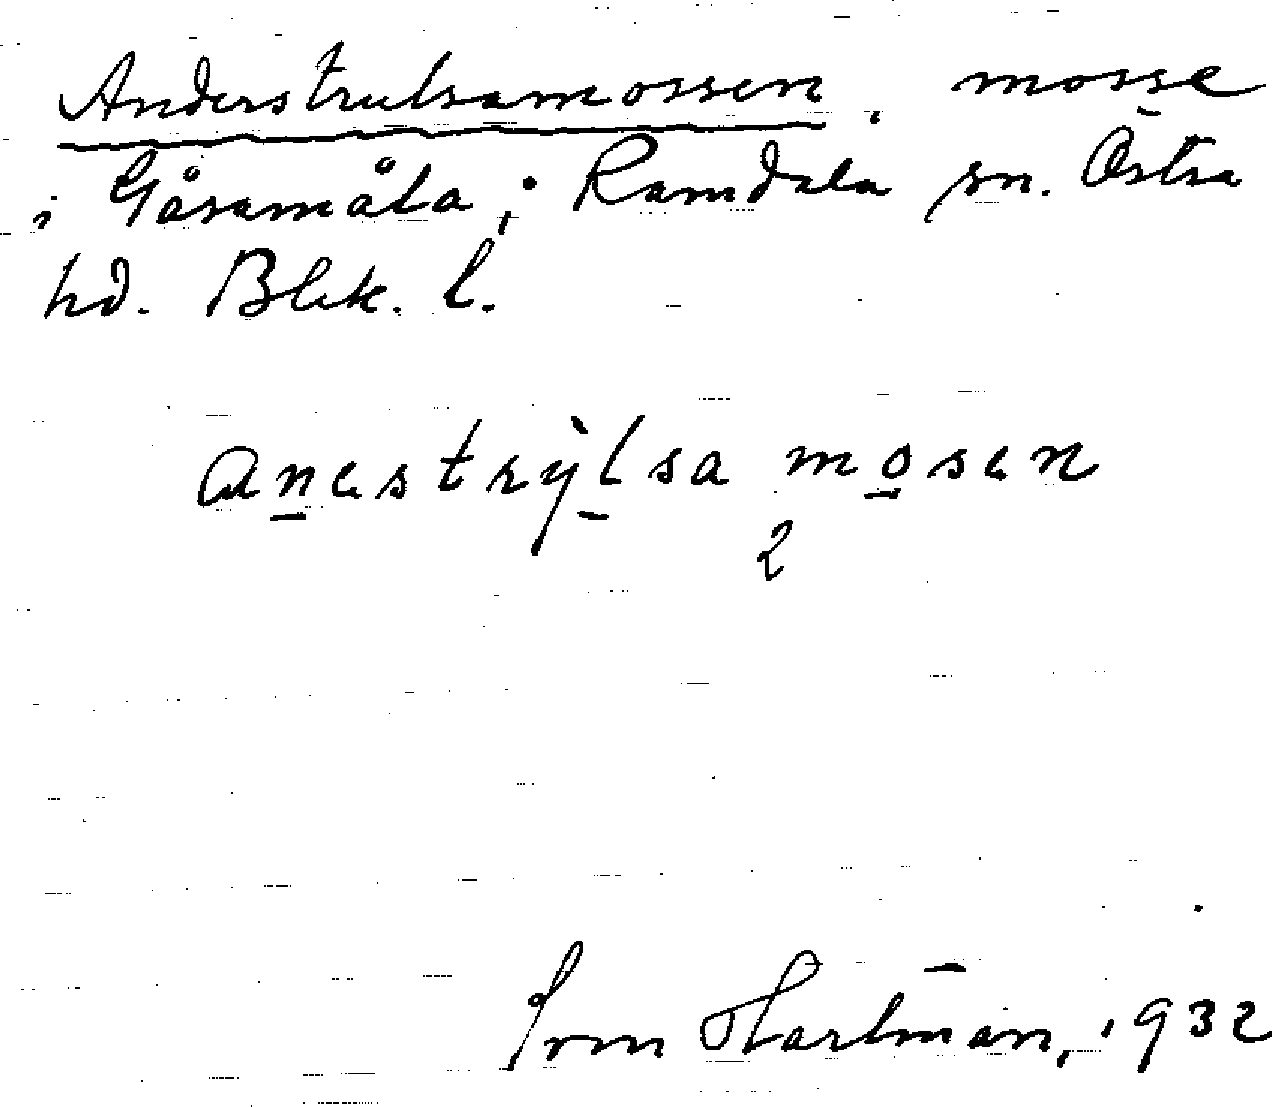 Anderstrulsamossen, mosse
i Gåsamåla; Ramdala sn. Östra
hd. Blek. l.
anɛstrỳlsa mosɛn
2
Hartman, 1932